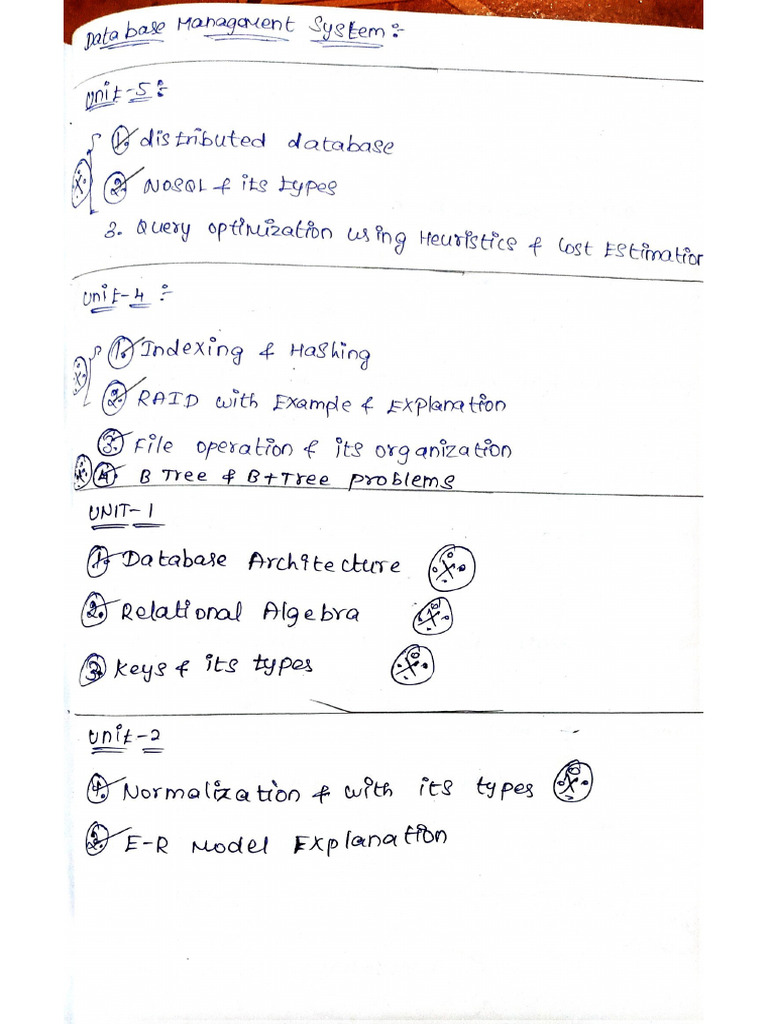 Database Managament System :-
Unit-5 :-
1. distributed database
2. NOSQL & its types
3. Query optimization using Heuristics & Cost Estimation
Unit-4 :-
1. Indexing & Hashing
2. RAID with Example & Explanation
3. File operation & its organization
4. B Tree & B+Tree problems
UNIT-1
1. Database Architecture
2. Relational Algebra
3. Keys & its types
Unit-2
1. Normalization & with its types
2. E-R Model Explanation